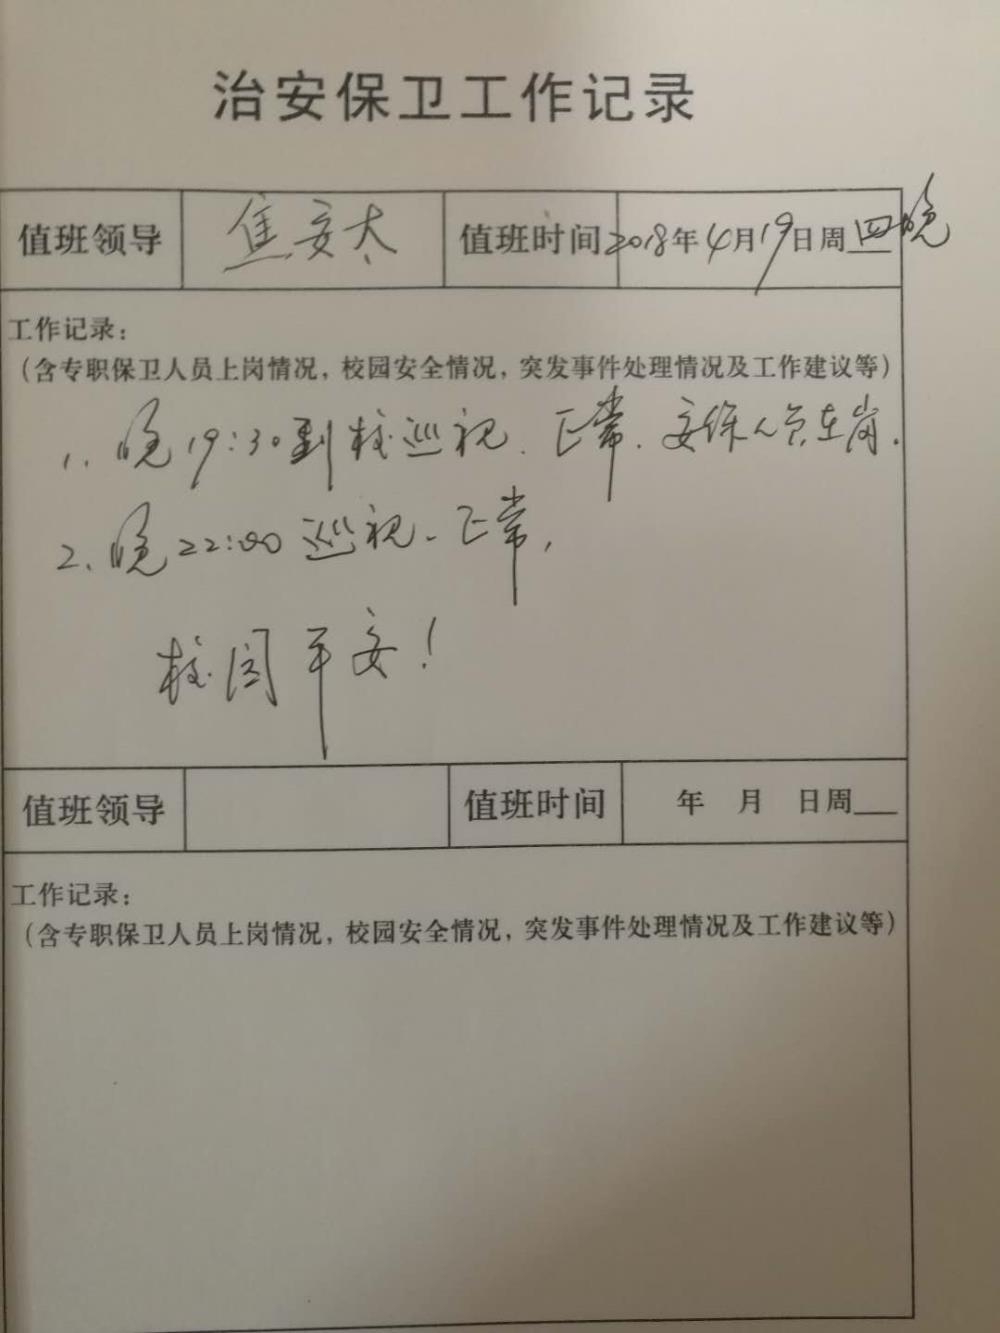 治安保卫工作记录
值班领导 焦安太 值班时间 2018年4月19日周四晚
工作记录：
（含专职保卫人员上岗情况，校园安全情况，突发事件处理情况及工作建议等）
1、晚19:30到校巡视、正常、安保人员在岗.
2、晚22:00巡视、正常，
校园平安！
值班领导 值班时间 年 月 日周
工作记录：
（含专职保卫人员上岗情况，校园安全情况，突发事件处理情况及工作建议等）